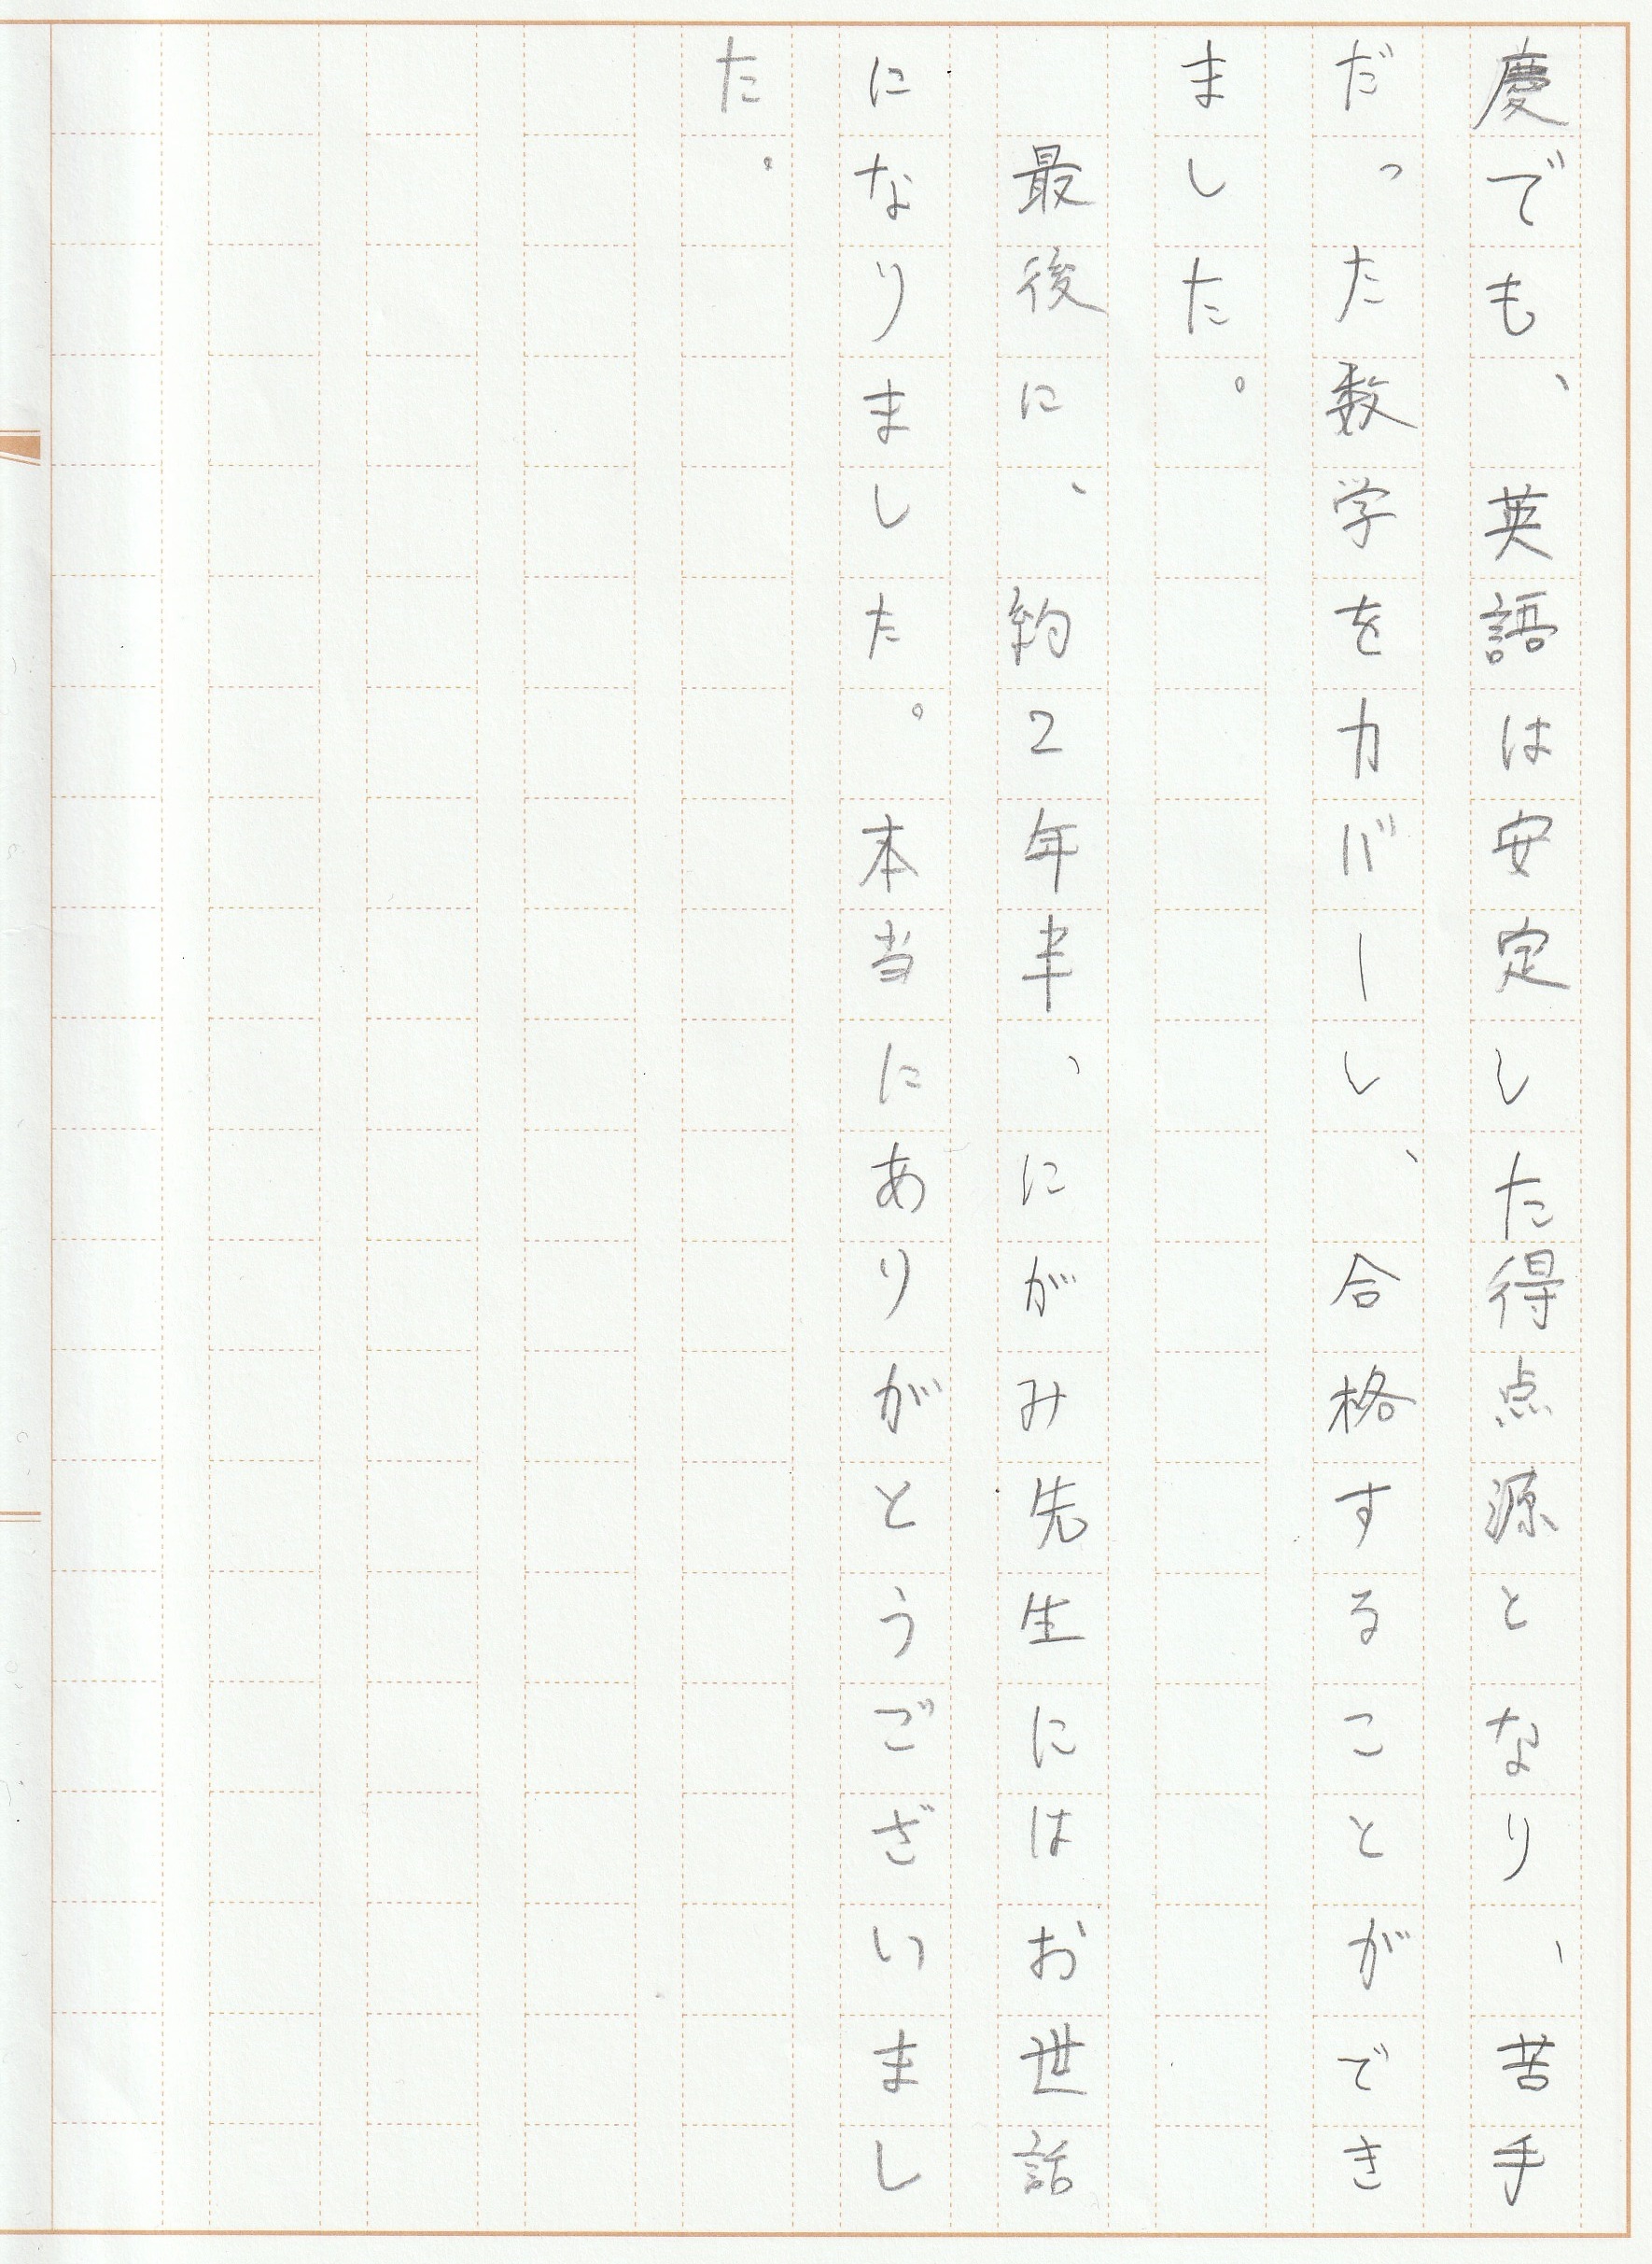 慶でも、英語は安定した得点源となり、苦手
だった数学をカバーし、合格することができ
ました。
最後に、約2年半、にがみ先生にはお世話
になりました。本当にありがとうございまし
た。